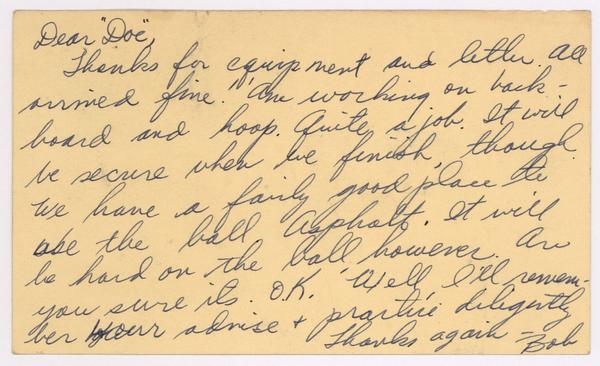 Dear "Doc",
Thanks for equipment and letter. All
arrived fine. Am working on back-
board and hoop. Quite a job. It will
be secure when we finish, though.
We have a fairly good place to
use the ball. Asphalt. It will
be hard on the ball, however. Are
you sure its. O.K. Well, I'll remem-
ber your advise + practice diligently
Thanks again - Bob